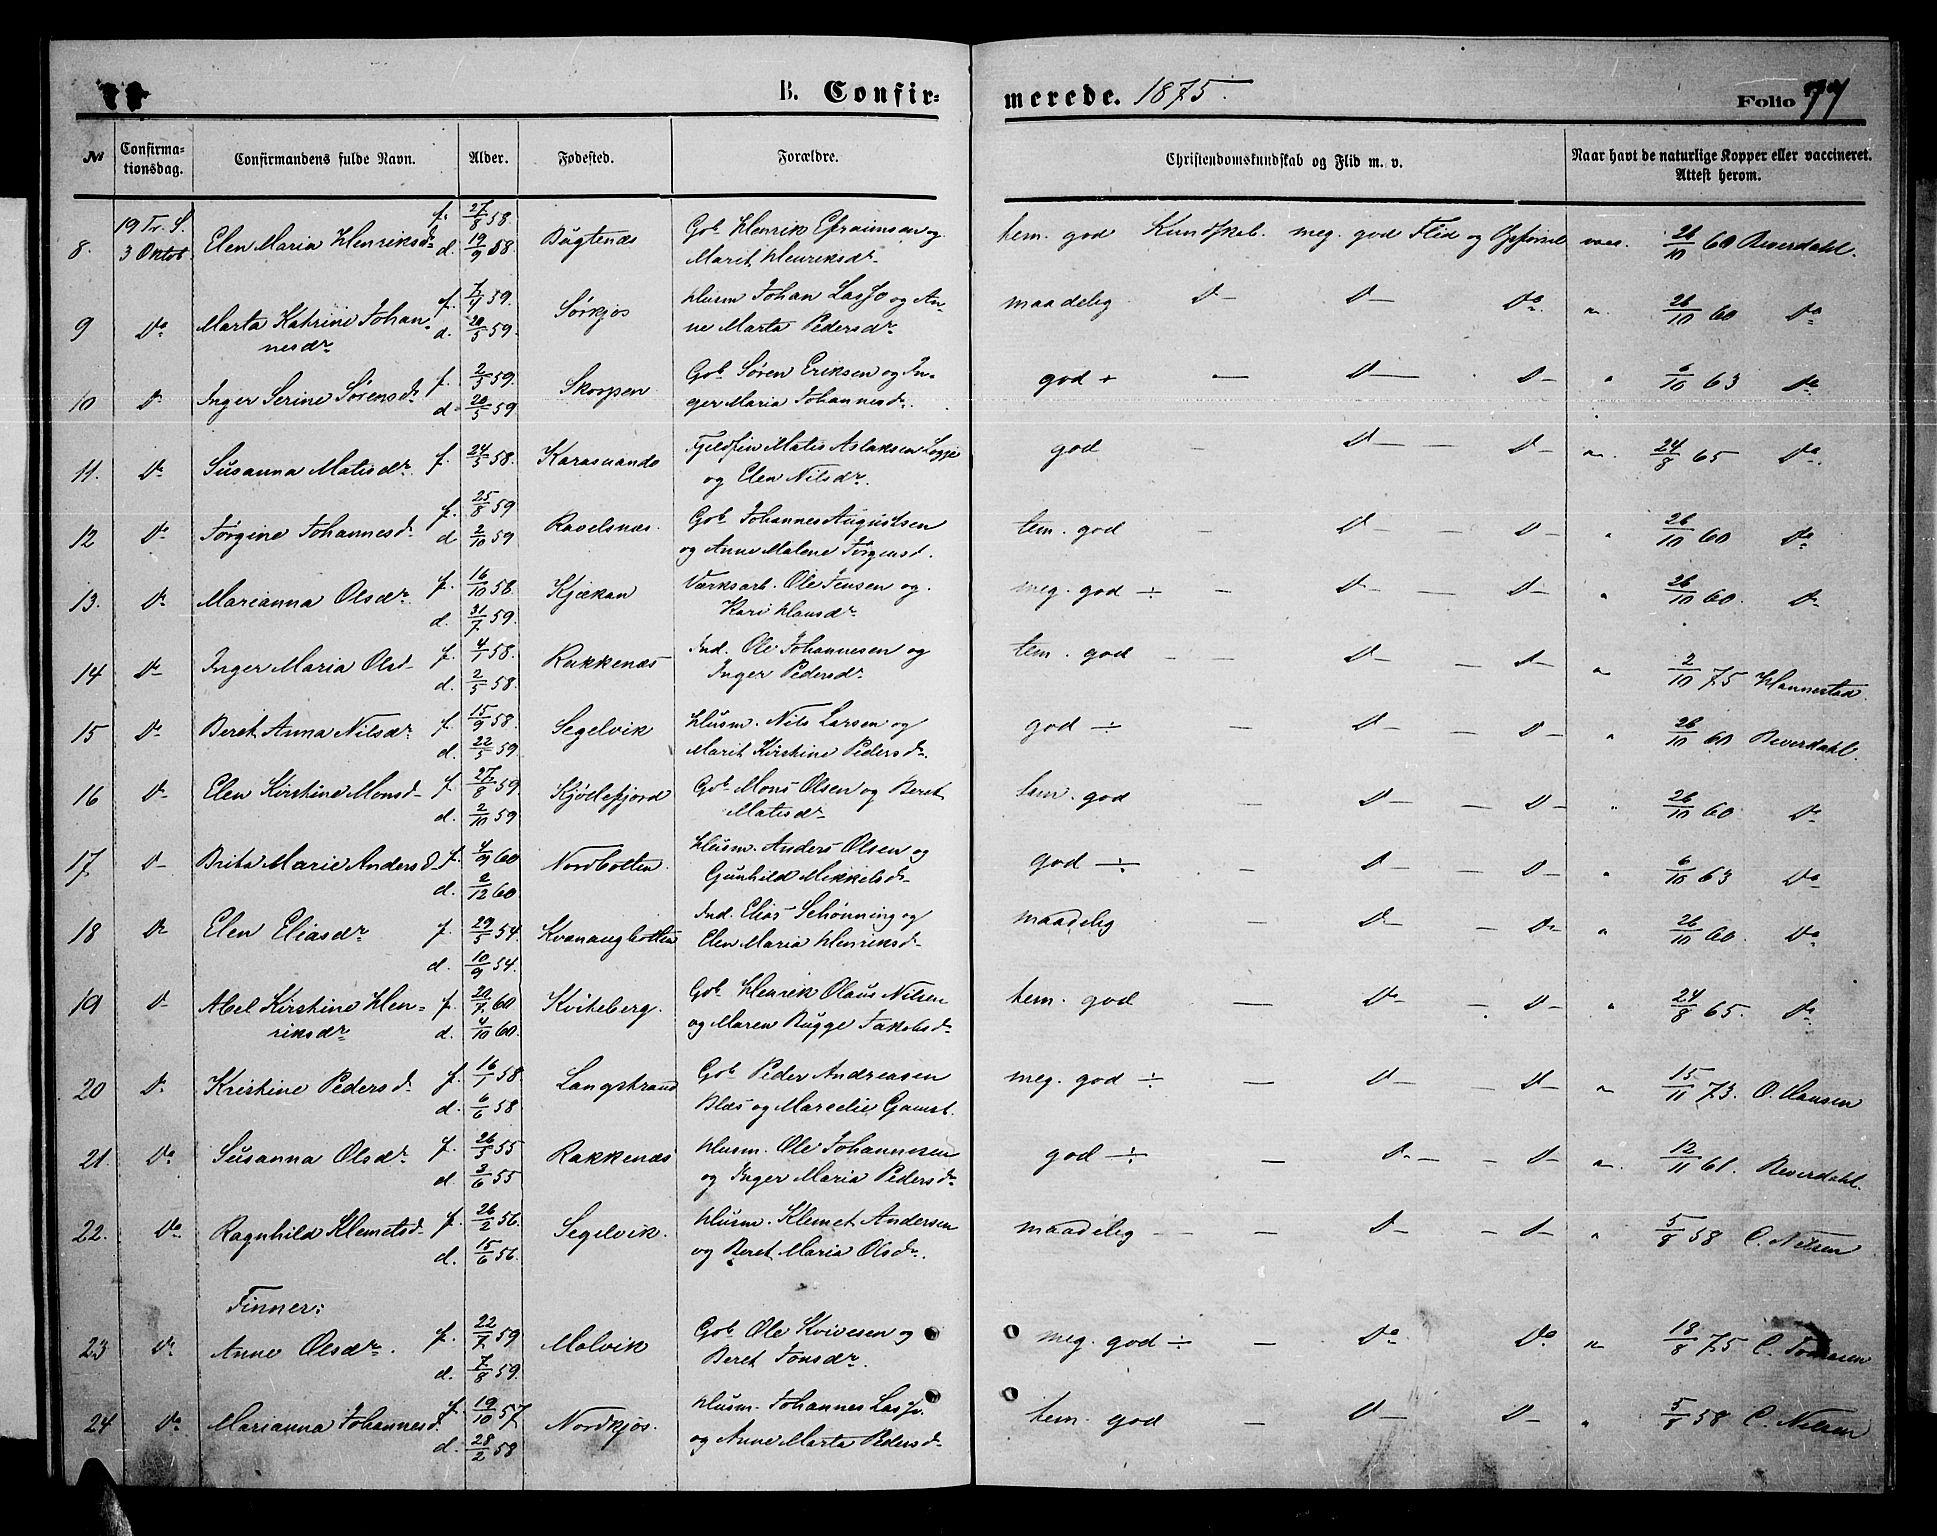 B. Confirmerede. 1875. Folio 77
No Confirmationsdag. Confirmandens fulde Navn. Alder. Fødested. Forældre. Christendomskundskab og Flid m. v. Naar havt de naturlige Kopper eller vaccineret. Attest herom.
19 Tr. S.
8. 3 Oktob Elen Maria Henriksdr f. 27/8 58. d. 19/9 58 Bugtenæs Gbr Henrik Efraimsen og Marit Henriksdr tem. god Kundskab. meg. god Flid og Opførsel vacc. 26/10 60 Beverdahl.
9 Do Marta Katrine Johannesdr f. 7/4 59. d. 20/5 59. Sørkjos Husm Johan Lasso og Anne Marta Pedersdr maadelig D— D— Do. " 26/10 60 Do
10 D Inger Serine Sørensdr f. 2/5 59. d. 20/5 59 Skorpen Gbr Søren Eriksen og Inger Maria Johannesdr. god + — D— D— " 6/10 63 Do
11. Do Susanna Matisdr f. 24/5 58. Karasuando Fjeldfin Matis Aslaksen og Elen Nilsdr. god — D— D— " 24/8 65 Do.
12 Do Jørgine Johannesd. f. 25/8 59 d 2/10 59 Ravelsnæs. Gbr Johannes Augustsen og Anne Malene Jørgensd. tem. god — D— D— " 26/10 60 Do
13. Do Marianna Olsdr f. 16/10 56 d. 31/7 59. Kjækan Værksarb. Ole Jensen og Kari Hansdr meg. god ÷ — D— D— " 26/10 60. D
14 Do Inger Maria Olsd f. 4/1 58. d. 2/5 58. Rakkenæs Ind. Ole Johannesen og Inger Pedersdr tem. god — D— D— " 2/10 75 Hannestad
15 Do Beret Anna Nilsdr f. 15/9 58. d. 22/5 59 Segelvik Husm. Nils Larsen og Marit Kirstine Pedersdr. god ÷ — D— D— " 26/10 60 Beverdahl.
16 D Elen Kirstine Monsd f. 27/8 59. d. 2/10 59 Kjøllefjord Gbr Mons Olsen og Beret Matisdr tem. god — D— D— " 26/10 60 Do
17. D Brita Marie Andersd f. 4/9 60 d. 2/12 60 Nordbotten Husm. Anders Olsen og Gunhild Mikkelsdr god ÷ — D— D— " 6/10 63 Do
18 Do Elen Eliasdr f. 29/5 54. d. 10/9 54. Kvænangbotten Ind. Elias Schønning og Elen Maria Henriksd maadelig — D— D— " 26/10 60. Do
19 D Abel Kirstine Henriksdr f. 20/7 60 d. 4/10 60. Kviteberg. Gbr Henrik Olaus Nilsen og Maren Bugge Jakobsdr tem. god — Do D— " 24/8 65. Do
20 D Kristine Pedersd. f. 16/1 58. d. 6/6 58 Langstrand Gbr Peder Andreasen Blæs og Marcelie Gamst. meg. god ÷ — D— D— " 15/11 73. O. Hansen
21. Do Susanna Olsdr f. 26/3 55 d. 3/6 55 Rakkenæs Husm. Ole Johannesen og Inger Maria Pedersdr god ÷ — D— D— " 12/11 61. Beverdahl.
22. Do Ragnhild Klemetsd. f. 26/2 56. d. 15/6 56. Segelvik. Husm. Klemet Andersen og Beret Maria Olsdr. maadelig — D— D— " 5/8 58 C. Nilsen
Finner:
23 Do Anne Olsdr. f. 22/7 59 d. 7/8 59. Molvik Gbr Ole Kvivesen og Beret Jonsdr. meg. god ÷ — Do Do " 18/8 75 C. Tomasen
24 Do Marianna Johannesd. f. 19/10 57 d. 28/2 58 Nordkjos. Husm. Johannes Lasso. og Anne Marta Pedersd tem. god — D— D— " 5/8 58 C. Nilsen